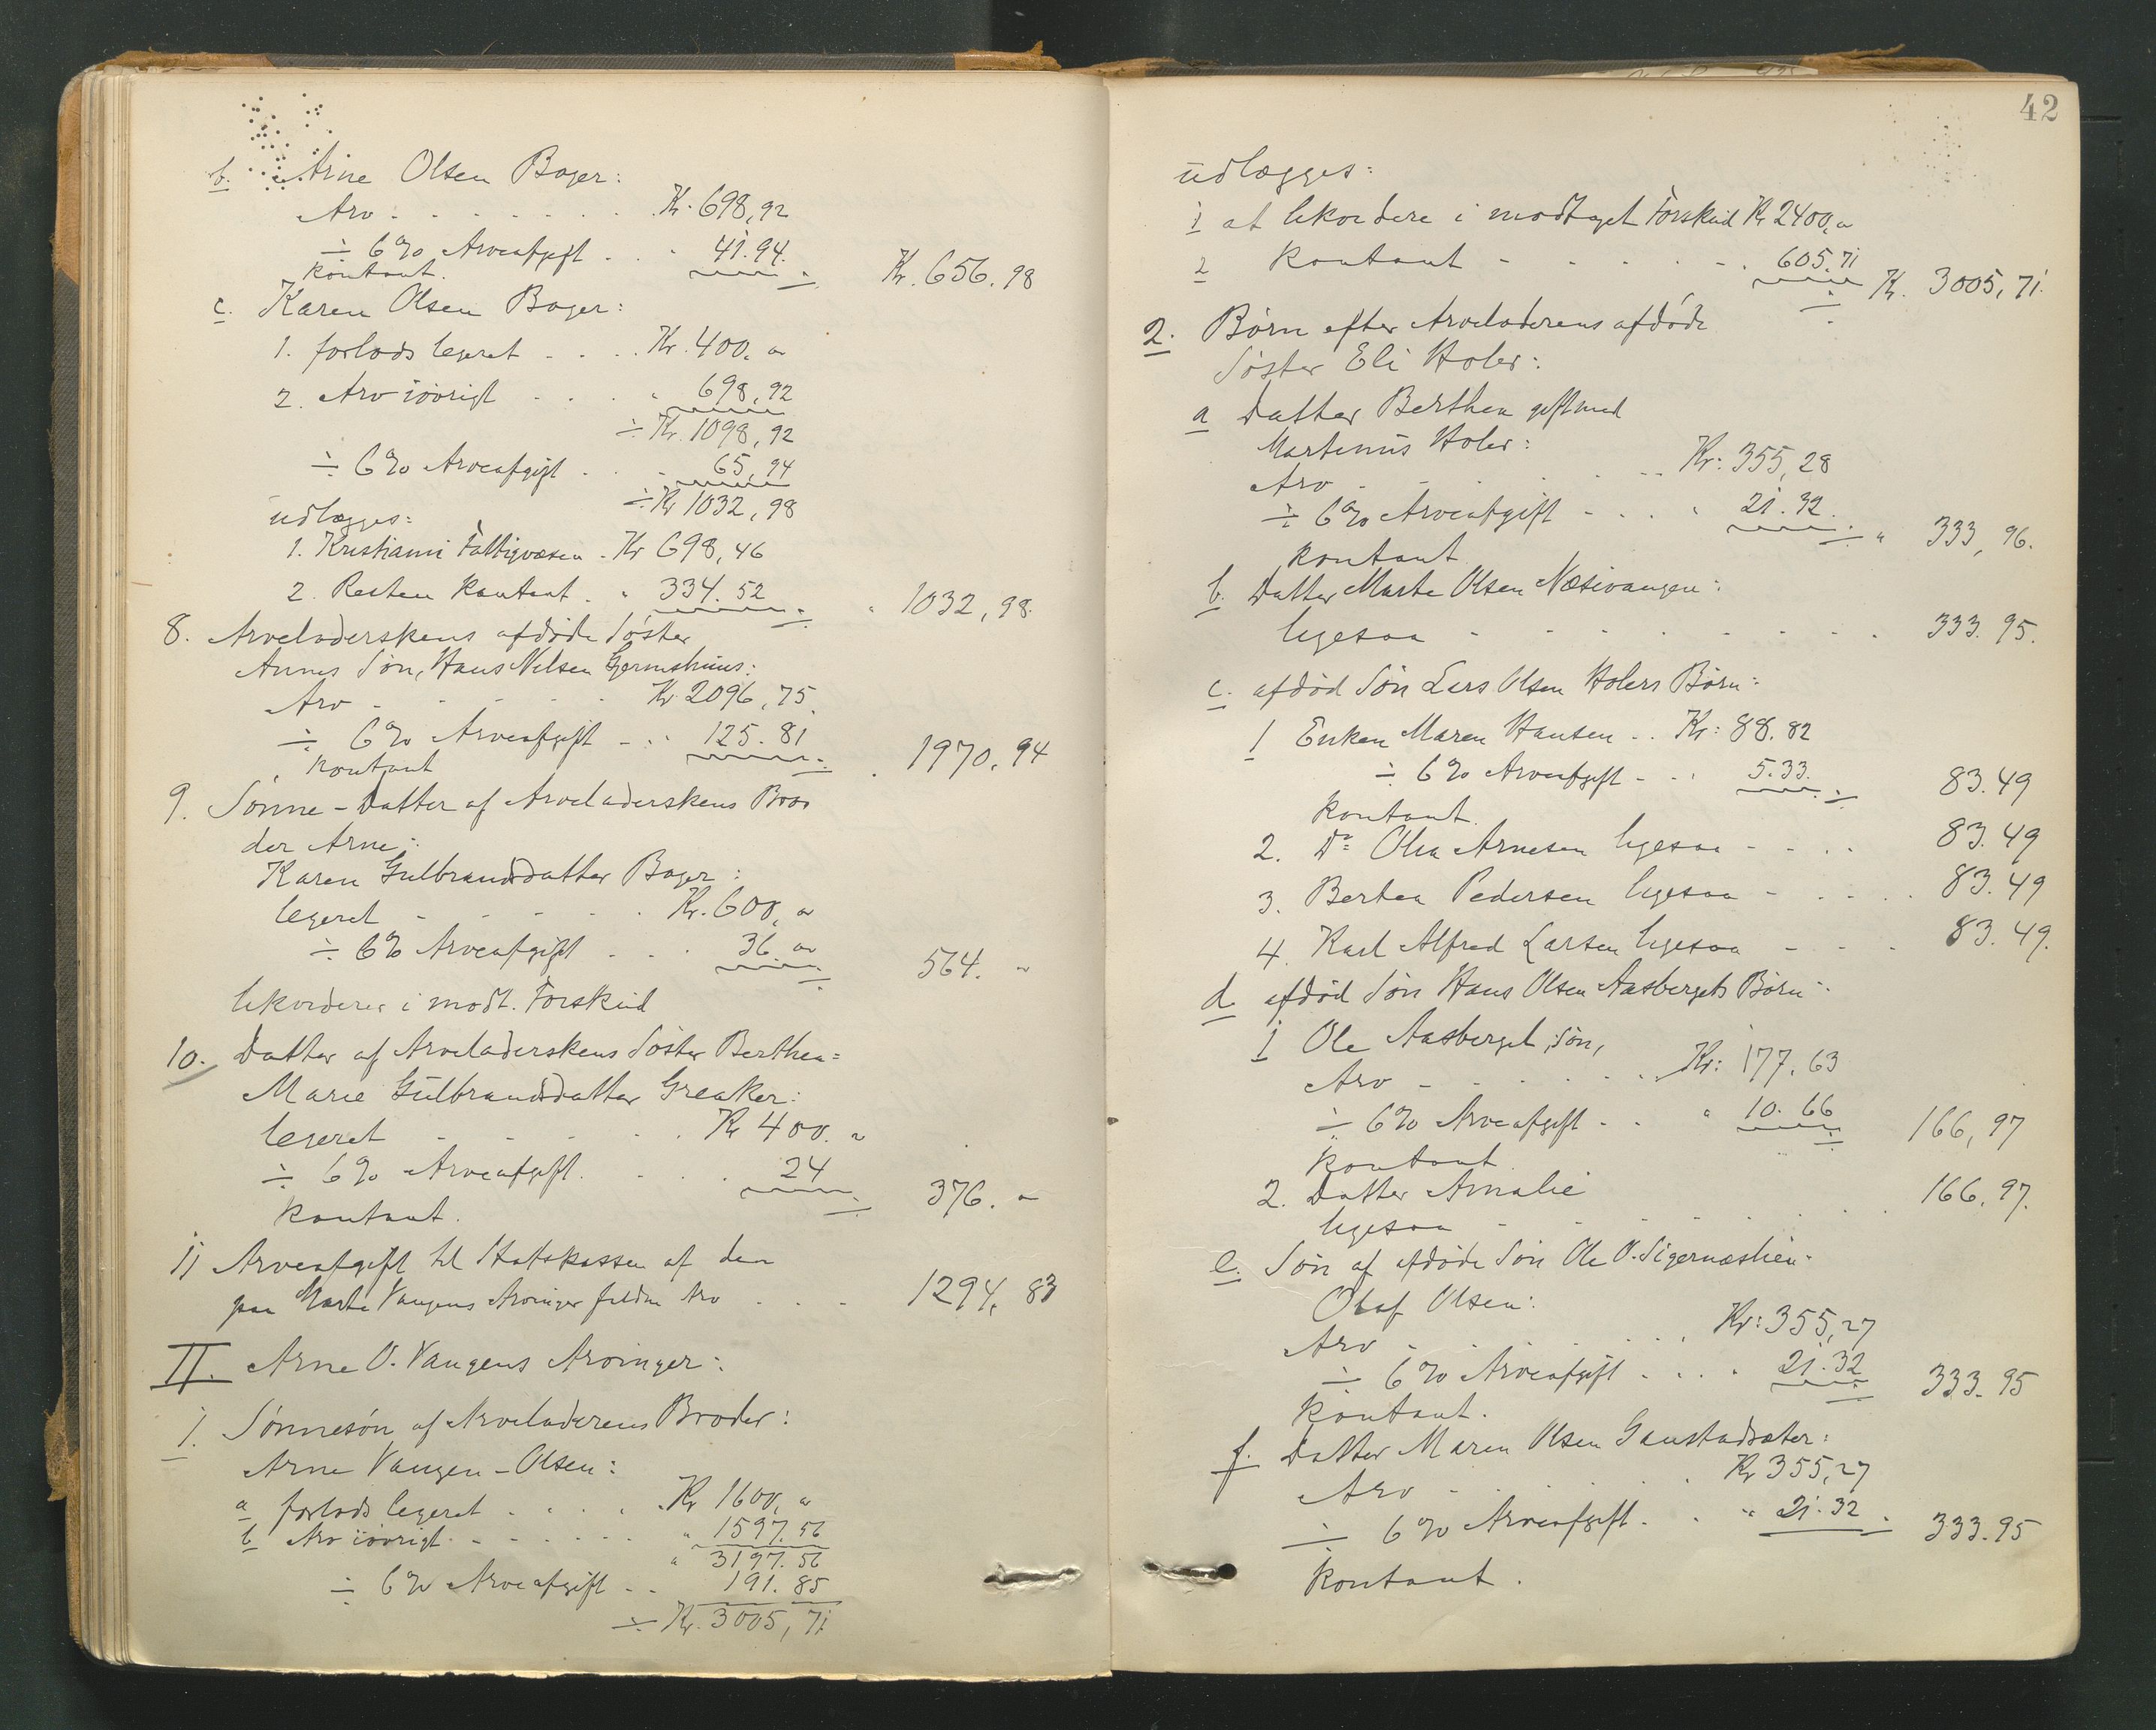 b. Arne Olsen Bager:
Arv . . . . . . . Kr. 698,92
÷ 6% Arveafgift . . " 41.94.
kontant. Kr. 656.98
c. Karen Olsen Bager:
1. forlods legeret . . . Kr. 400. "
2. Arv iøvrigt . . . " 698,92
÷ Kr. 1098,92
÷ 6% Arveafgift . . 65,94
÷ Kr 1032,98
udlægges:
1. Kristiania Fattigvæsen - Kr 698,46
2. Resten kontant . " 334.52 " 1032,98.
8. Arveladerskens afdøde Søster
Annes Søn, Hans Nilsen Gjermshuus:
Arv - - - - - Kr 2096,75.
÷ 6% Arveafgift - . . 125.81
kontant . 1970,94
9. Sønne-Datter af Arveladerskens Bro-
der Arne:
Karen Gulbrandsdatter Bager:
legeret - - - - . Kr. 600, "
÷ 6% Arveafgift . . . 36. " 564. "
likviderer i modt. Forskud
10. Datter af Arveladerskens Søster Berthea:
Marie Gulbrandsdatter Greaker:
legeret - - - - . Kr 400. "
÷ 6% Arveafgift. . . . 24 376. "
kontant.
11 Arveafgift til Statskassen af den
paa Marte Vangens Arvinger faldne Arv . . . 1294,83
II. Arne O. Vangens Arvinger:
1. Sønnesøn af Arveladerens Broder:
Arne Vangen-Olsen:
a forlods legeret . . . . Kr 1600, "
b Arv iøvrigt . - - - - - " 1597.56
" 3197.56
÷ 6% Arveafgift - . 191.85
÷ Kr. 3005,71
42
udlægges:
1 at likvidere i modtaget Forskud Kr 2400, "
2 kontant - - - - - . 605.71 Kr. 3005,71.
2. Børn efter Arveladerens afdøde
Søster Eli Holer:
a Datter Berthea gift med
Martinus Holer:
Arv - - - - - Kr: 355,28
÷ 6% Arveafgift - . . " 21.32. " 333,96.
kontant
b. Datter Marte Olsen Næsivangen:
ligesaa - - - - - - - . 333.95.
c. afdød Søn Lars Olsen Holers Børn:
1 Enken Maren Hansen . . Kr: 88.82
÷ 6% Arveafgift - . . 5.33. 83.49
kontant.
2. Do Olea Arnesen ligesaa - - . . 83.49
3. Bertea Pedersen ligesaa - . . . . 83.49
4. Karl Alfred Larsen ligesaa - - . 83.49.
d afdød Søn Hans Olsen Aasbergets Børn:
1 Ole Aasberget, Søn,
Arv - . . . . . Kr: 177.63
÷ 6% Arveafgift - . " 10.66 166,97
kontant
2. Datter Amalie
ligesaa - - - - - . . . 166,97.
e. Søn af afdøde Søn Ole O. Sigernæshien:
Olaf Olsen:
Arv - . . . . . . Kr: 355,27
÷ 6% Arveafgift . . . " 21.32 333.95
kontant.
f. Datter Maren Olsen Gaustadsæter:
Arv - . . . . Kr 355,27
÷ 6% Arveafgift . . " 21.32 333.95
kontant.